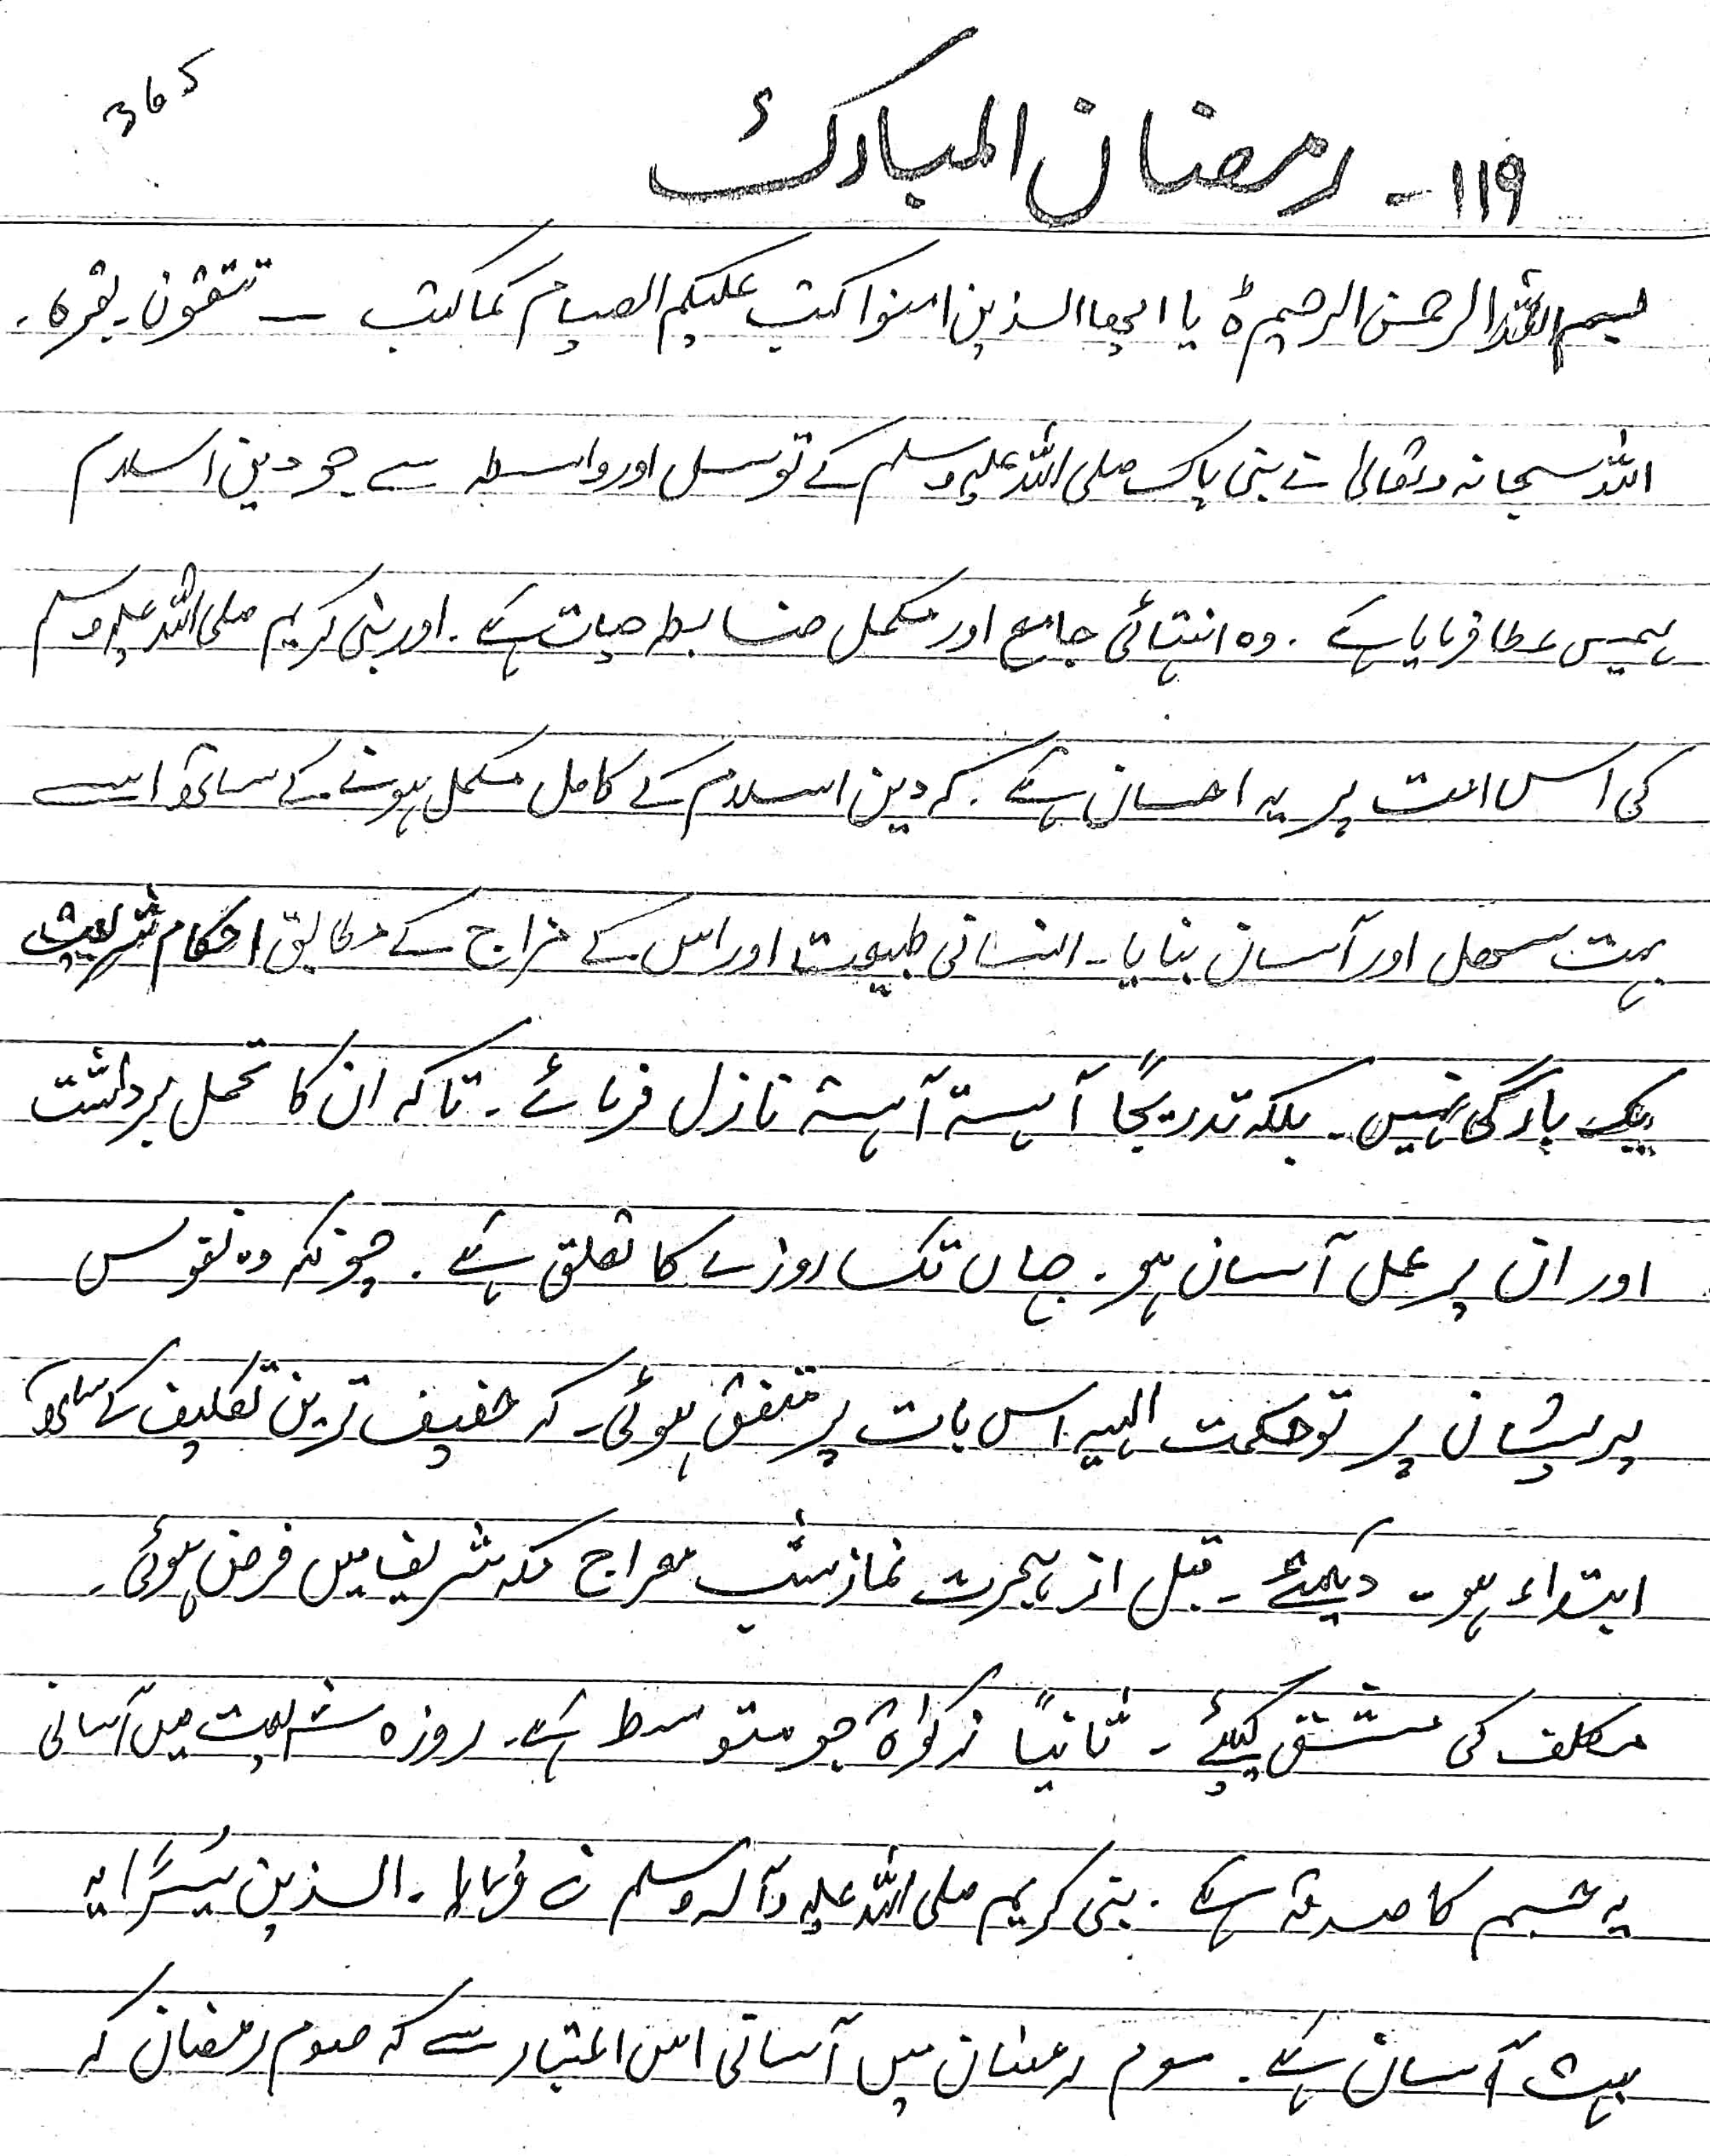 365
۱۱۹۔ رمضان المبارک
بسم اللہ الرحمن الرحیم ہ یا ایھا الذین امنوا کتب علیکم الصیام کما کتب ــ تتقون۔ بقرہ۔
اللہ سبحانہ وتعالیٰ نے نبی پاک صلی اللہ علیہ وسلم کے توسل اور واسطہ سے جو دین اسلام
ہمیں عطا فرمایا ہے۔ وہ انتہائی جامع اور مکمل ضابطہ حیات ہے۔ اور نبی کریم صلی اللہ علیہ وسلم
کی اس امت پر یہ احسان ہے۔ کہ دین اسلام کے کامل مکمل ہونے کے ساتھ اسے
بہت سھل اور آسان بنایا۔ انسانی طبیعت اور اس کے مزاج کے مطابق احکام شریعت
یک بارگی نہیں۔ بلکہ تدریجاً آہستہ آہستہ نازل فرمائے۔ تاکہ ان کا تحمل برداشت
اور ان پر عمل آسان ہو۔ جہاں تک روزے کا تعلق ہے۔ چونکہ وہ نفوس
پریشان پر تو حکمت الہیہ اس بات پر متفق ہوئی۔ کہ خفیف ترین تکلیف کے ساتھ
ابتداء ہو۔ دیکھئے۔ قبل از ہجرت نماز شب معراج مکہ شریف میں فرض ہوئی۔
مکلف کی مشق کیلئے۔ ثانیاً زکواۃ جو متوسط ہے۔ روزہ شریعت میں آسانی
یہ جسم کا صدقہ ہے۔ نبی کریم صلی اللہ علیہ وآلہ وسلم نے فرمایا۔ الذین یُسرًا یہ
بہت آسان ہے۔ سوم رمضان میں آسانی اس اعتبار سے کہ صوم رمضان کہ